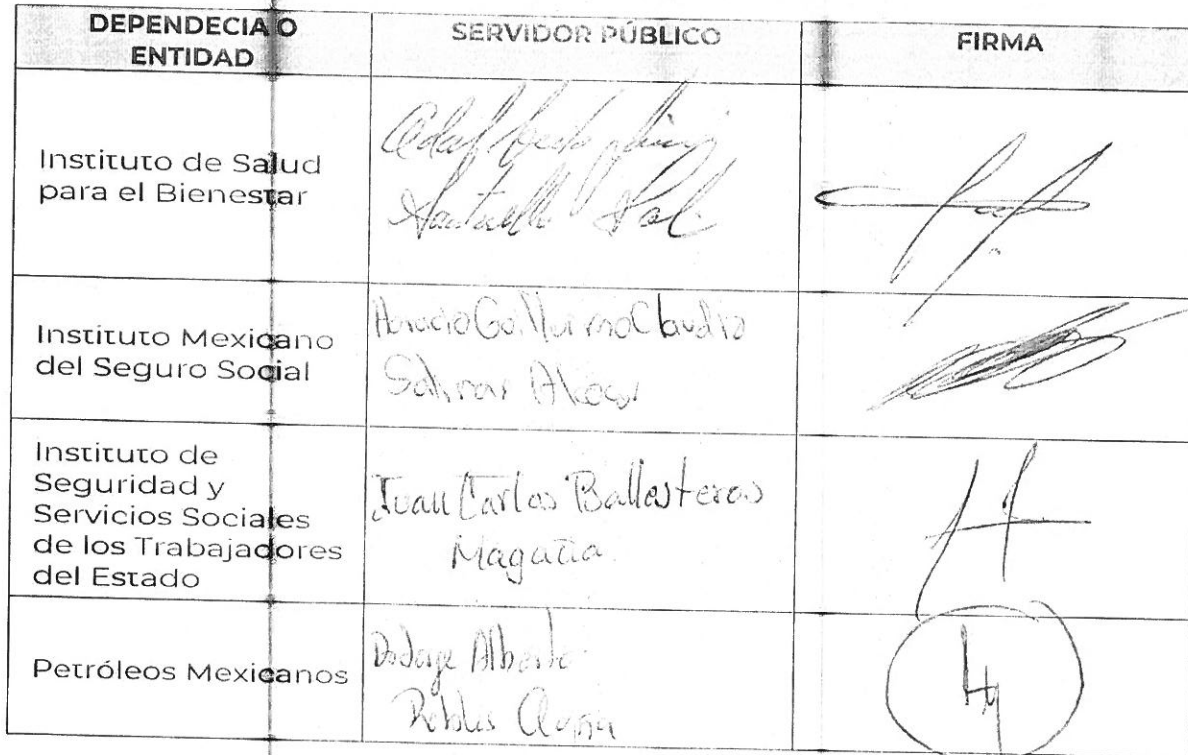 DEPENDECIA O
ENTIDAD
SERVIDOR PÚBLICO
FIRMA
Instituto de Salud
para el Bienestar
Instituto Mexicano
del Seguro Social
Horacio Guillermo Claudio
Salinas
Instituto de
Seguridad y
Servicios Sociales
de los Trabajadores
del Estado
Juan Carlos Ballesteros
Magaña
Petróleos Mexicanos
Alberto
Robles